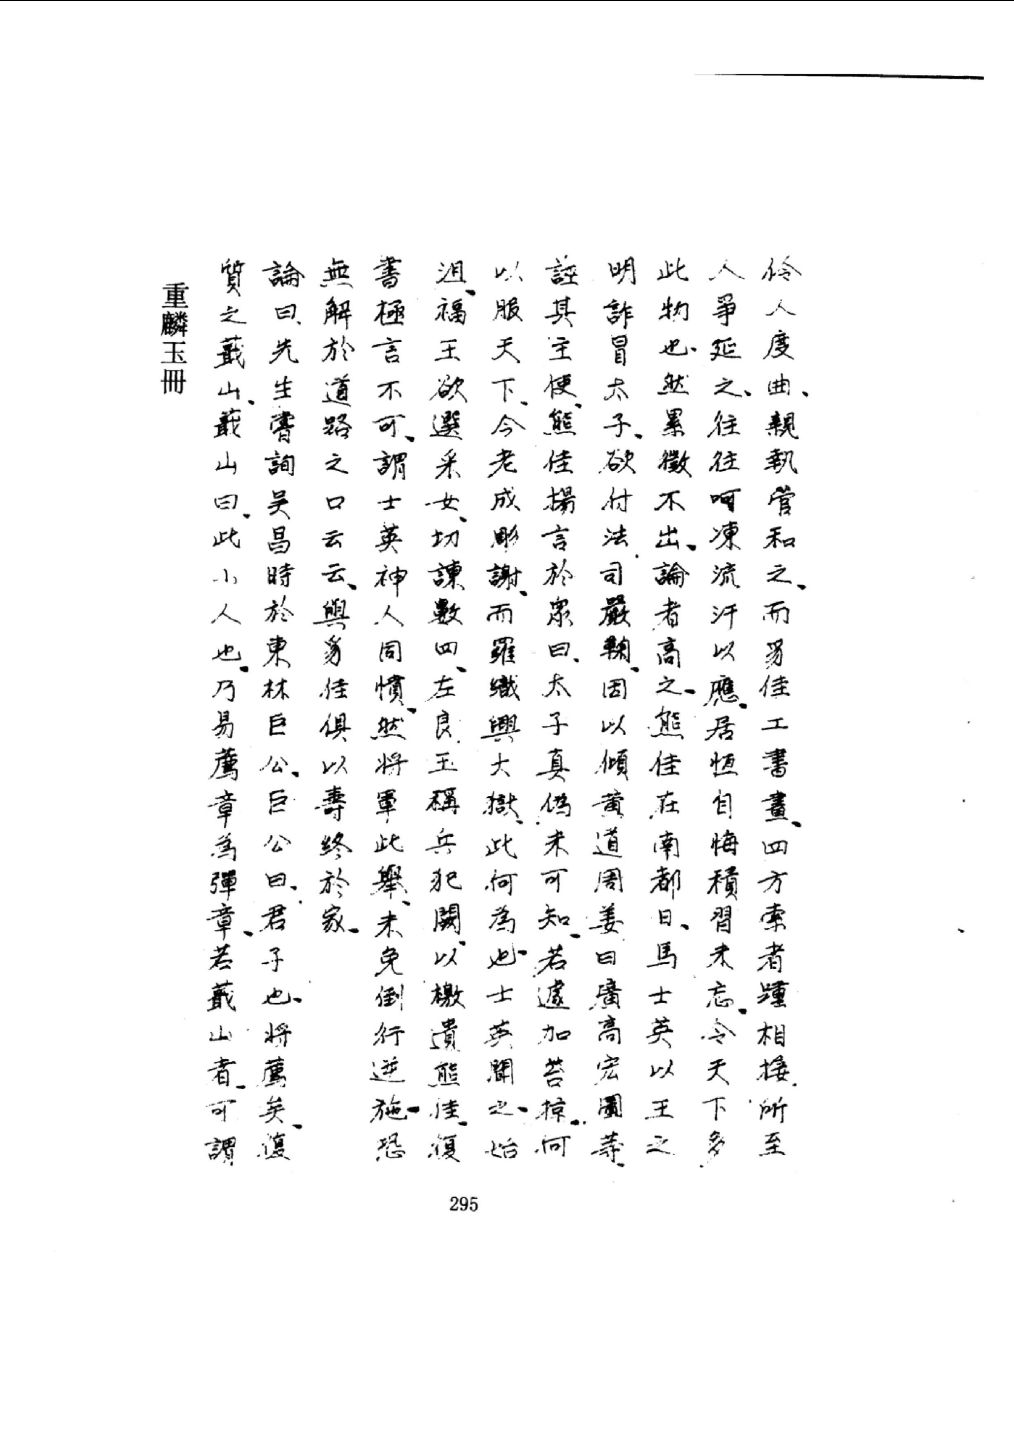 伶人度曲、親執管和之、而豸佳工書畫、四方索者踵相接、所至
人爭延之、往往呵凍流汗以應、居恆自悔積習未忘、令天下多
此物也、然累徵不出、論者高之、熊佳在南都日、馬士英以王之
明詐冒太子、欲付法司嚴鞫、因以傾黃道周姜曰廣高宏圖等、
誣其主使、熊佳揚言於眾曰、太子真偽未可知、若遽加苔掠、何
以服天下、今老成彫謝、而羅織興大獄、此何為也、士英聞之、始
沮、福王欲選采女、切諫數四、左良玉稱兵犯闕、以檄遺熊佳、復
書極言不可、謂士英神人同憤、然將軍此舉、未免倒行逆施、恐
無解於道路之口云云、與豸佳俱以壽終於家、
論曰、先生嘗詢吴昌時於東林巨公、巨公曰、君子也、將薦矣、復
質之蕺山、蕺山曰、此小人也、乃易薦章為彈章、若蕺山者、可謂
重麟玉冊
295